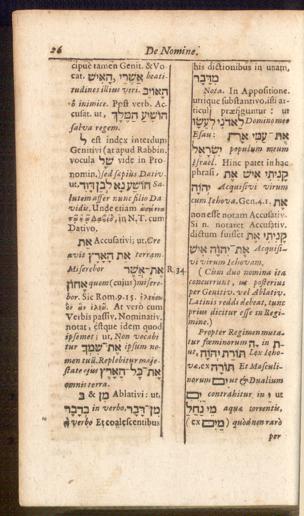 26
De Nomine.
cipuè tamen Genit. & Vo
cat. אַשְׁרֵי הָאִישׁ beati-
tudines illius veri. הָאוֹיֵב
ô inimice. Ppst verb. Ac-
cusat. ut, הוֹשִׁיעַ הַמֶּלֶךְ
salva regem.
ל est index interdum
Genitivi (at apud Rabbin.
vocula שֶׁל vide in Pro-
nomin.) sed sæpius Dativ.
הוֹשַׁעְנָא לְבֶן דָּוִד ut Sa-
lutem affer nunc filio Da
vidis. Unde etiam
in N. T. cum
Dativo.
אֶת Accusativi; ut. Cre
avit אֶת הָאָרֶץ terram.
Miserebor אֶת־אֲשֶׁר
אָחוֹן quem (cujus) misere-
bor. Sic Rom. 9. 15.
At verò cum
Verbis passiv. Nominativ.
notat, estque idem quod
ipsemet; ut, Non vocabi
tur אֶת־שִׁמְךָ ipsum no-
men tuũ. Replebitur maje-
state ejus אֶת־כָּל הָאָרֶץ
omnis terra.
מִן & בְּ Ablativi: ut,
בְּדָבָר in verbo, מִן דָּבָר
à verbo Et coalescentibus
R. 34
his dictionibus in unam,
מִדָּבָר
Nota. In Appositione
utrique substantivo, isti ar-
ticuli præfiguntur: ut
לַאדֹנִי לְעֵשָׂו Domino meo
Esau: אֶת־עַמִּי אֶת
יִשְׂרָאֵל populum meum
Israel. Hinc patet in hac
phrasi, קָנִיתִי אִישׁ אֶת
יְהֹוָה Acquisivi virum
cum Jehova. Gen. 4. 1. אֶת
non esse notam Accusativi
Si n. notaret Accusativ.
dictum fuisset קָנִיתִי אֶת
אֶת־יְהֹוָה אִישׁ Acquisi-
vi virum Jehovam.
(Cùm duo nomina ita
concurrunt, ut posterius
per Genitiv. vel Ablativ.
Latinis reddi debeat, tunc
prius dicitur esse in Regi-
mine.)
Propter Regimen muta-
tur fœminorum ה, in
ת, ut תּוֹרַת יְהֹוָה Lex Jeho
væ, ex תּוֹרָה Et Masculi-
norum ים ut & Dualium
ַיִם contrahitur in י ut
מֵי נַחַל aquæ torrentis,
(ex מַיִם) quòd non rarò
per